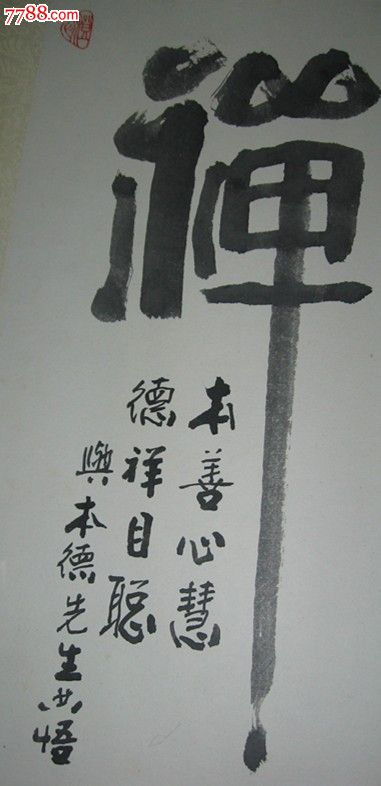 7788.com
禪
本善心慧
德祥目聪
與本德先生共悟